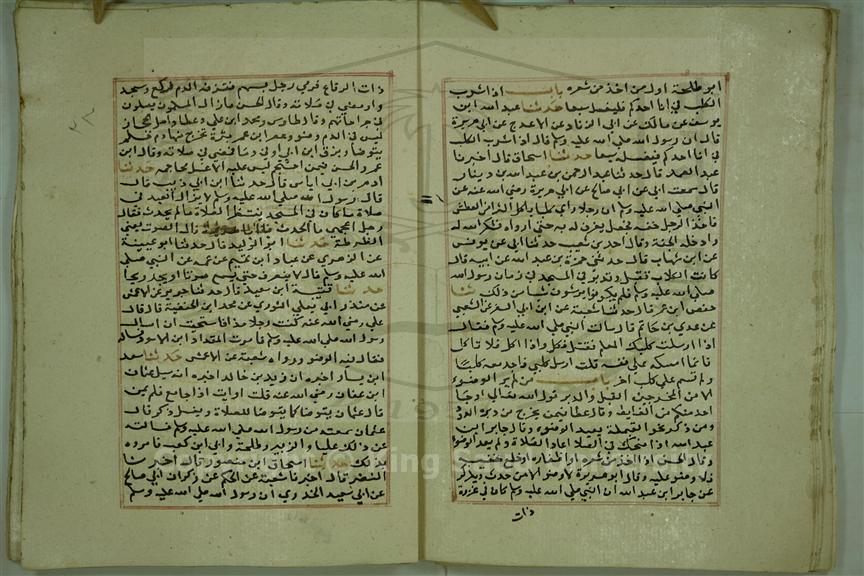 ابو طلحة اول من اخذ من شعره باب اذا شرب
الكلب في انا احدكم فليغسل سبعا حدثنا عبد الله ابن
يوسف عن مالك عن ابي الزناد عن الاعرج عن ابي هريرة
قال ان رسول الله صلي الله عليه وسلم قال اذا شرب الكلب
في انا احدكم فليغسله سبعا حدثنا اسحاق قال اخبرنا
عبد الصمد قال حدثنا عبد الرحمن بن عبد الله بن دينار
قال سمعت ابي عن ابي صالح عن ابي هريرة رضي الله عنه عن
النبي صلي الله عليه وسلم ان رجلا راي كلبا ياكل الثرا من العطش
فاخذ الرجل خفه فجعل يغرف له به حتى ارواه فشكر الله له
وادخله الجنة وقال احمد بن شبيب حدثنا ابي عن يونس
عن ابن شهاب قال حدثني حمزة بن عبد الله عن ابيه قال
كانت الكلاب تقبل وتدبر في المسجد في زمان رسول الله
صلي الله عليه وسلم فلم يكونوا يرشون شيا من ذلك ثنا
حفص ابن عمر قال حدثنا شعبة عن ابن ابي السفر عن الشعبي
عن عدي بن حاتم قال سالت النبي صلي الله عليه وسلم فقال
اذا ارسلت كلبك المعلم فقتل فكل واذا اكل فلا تاكل
فانما امسكه على نفسه قلت ارسل كلبي فاجد معه كلبا
ولم تسم علي كلب اخر باب من لم ير الوضوء
الا من المخرجين القبل والدبر قول الله تعالي او جا
احد منكم من الغايط وقال عطا فيمن يخرج من دبره الدود
ومن ذكره نحو القملة يعيد الوضوء وقال جابر ابن
عبد الله اذا ضحك في الصلاة اعاد الصلاة ولم يعد الوضوا
وقال الحسن اذا اخذ من شعره او اظفاره او خلع خفيه
فلا وضوء عليه وقال ابو هريرة لا وضوء الا من حدث ويذكر
عن جابر ابن عبد الله ان النبي صلي الله عليه وسلم كان في غزوة
ذات
ذات الرقاع فرمي رجل بسهم فنزفه الدم فركع وسجد
ومضي في صلاته وقال الحسن ما زال المسلمون يصلون
في جراحاتهم وقال طاوس ومحمد ابن علي وعطا واهل الحجاز
ليس في الدم وضوء وعصر ابن عمر بثرة فخرج منها دم فلم
يتوضا وبزق ابن ابي اوفي دما فمضي في صلاته وقال ابن
عمر والحسن فيمن احتجم ليس عليه الا غسل محاجمه حدثنا
ادم بن ابي اياس قال حدثنا ابن ابي ذيب قال
قال رسول الله صلي الله عليه وسلم لا يزال العبد في
صلاة ما كان في المسجد ينتظر الصلاة ما لم يحدث فقال
رجل اعجمي ما الحدث قال الصوت يعني
الضرطة حدثنا ابو الوليد قال حدثنا ابو عيينة
عن الزهري عن عباد ابن تميم عن عمه عن النبي صلي
الله عليه وسلم قال لا ينصرف حتى يسمع صوتا او يجد ريحا
حدثنا قتيبة ابن سعيد قال حدثنا جرير عن الاعمش
عن منذر ابي يعلي الثوري عن محمد ابن الحنفية قال قال
علي رضي الله عنه كنت رجلا مذا فاستحيت ان اسال
رسول الله صلي الله عليه وسلم فامرت المقداد ابن الاسود فساله
فقال فيه الوضوء ورواه شعبة عن الاعمش حدثنا سعد
ابن يسار اخبره ان زيد بن خالد اخبره انه سال عثمان
ابن عفان رضي الله عنه قلت ارايت اذا جامع فلم يمن
قال عثمان يتوضا كما يتوضا للصلاة ويغسل ذكره قال
عثمان سمعته من رسول الله صلي الله عليه وسلم فسالت
عن ذلك عليا والزبير وطلحة وابي ابن كعب فامروه
بذلك حدثنا اسحاق ابن منصور قال اخبرنا
النضر قال اخبرنا شعبة عن الحكم عن ذكوان ابي صالح
عن ابي سعيد الخدري ان رسول الله صلي الله عليه وسلم